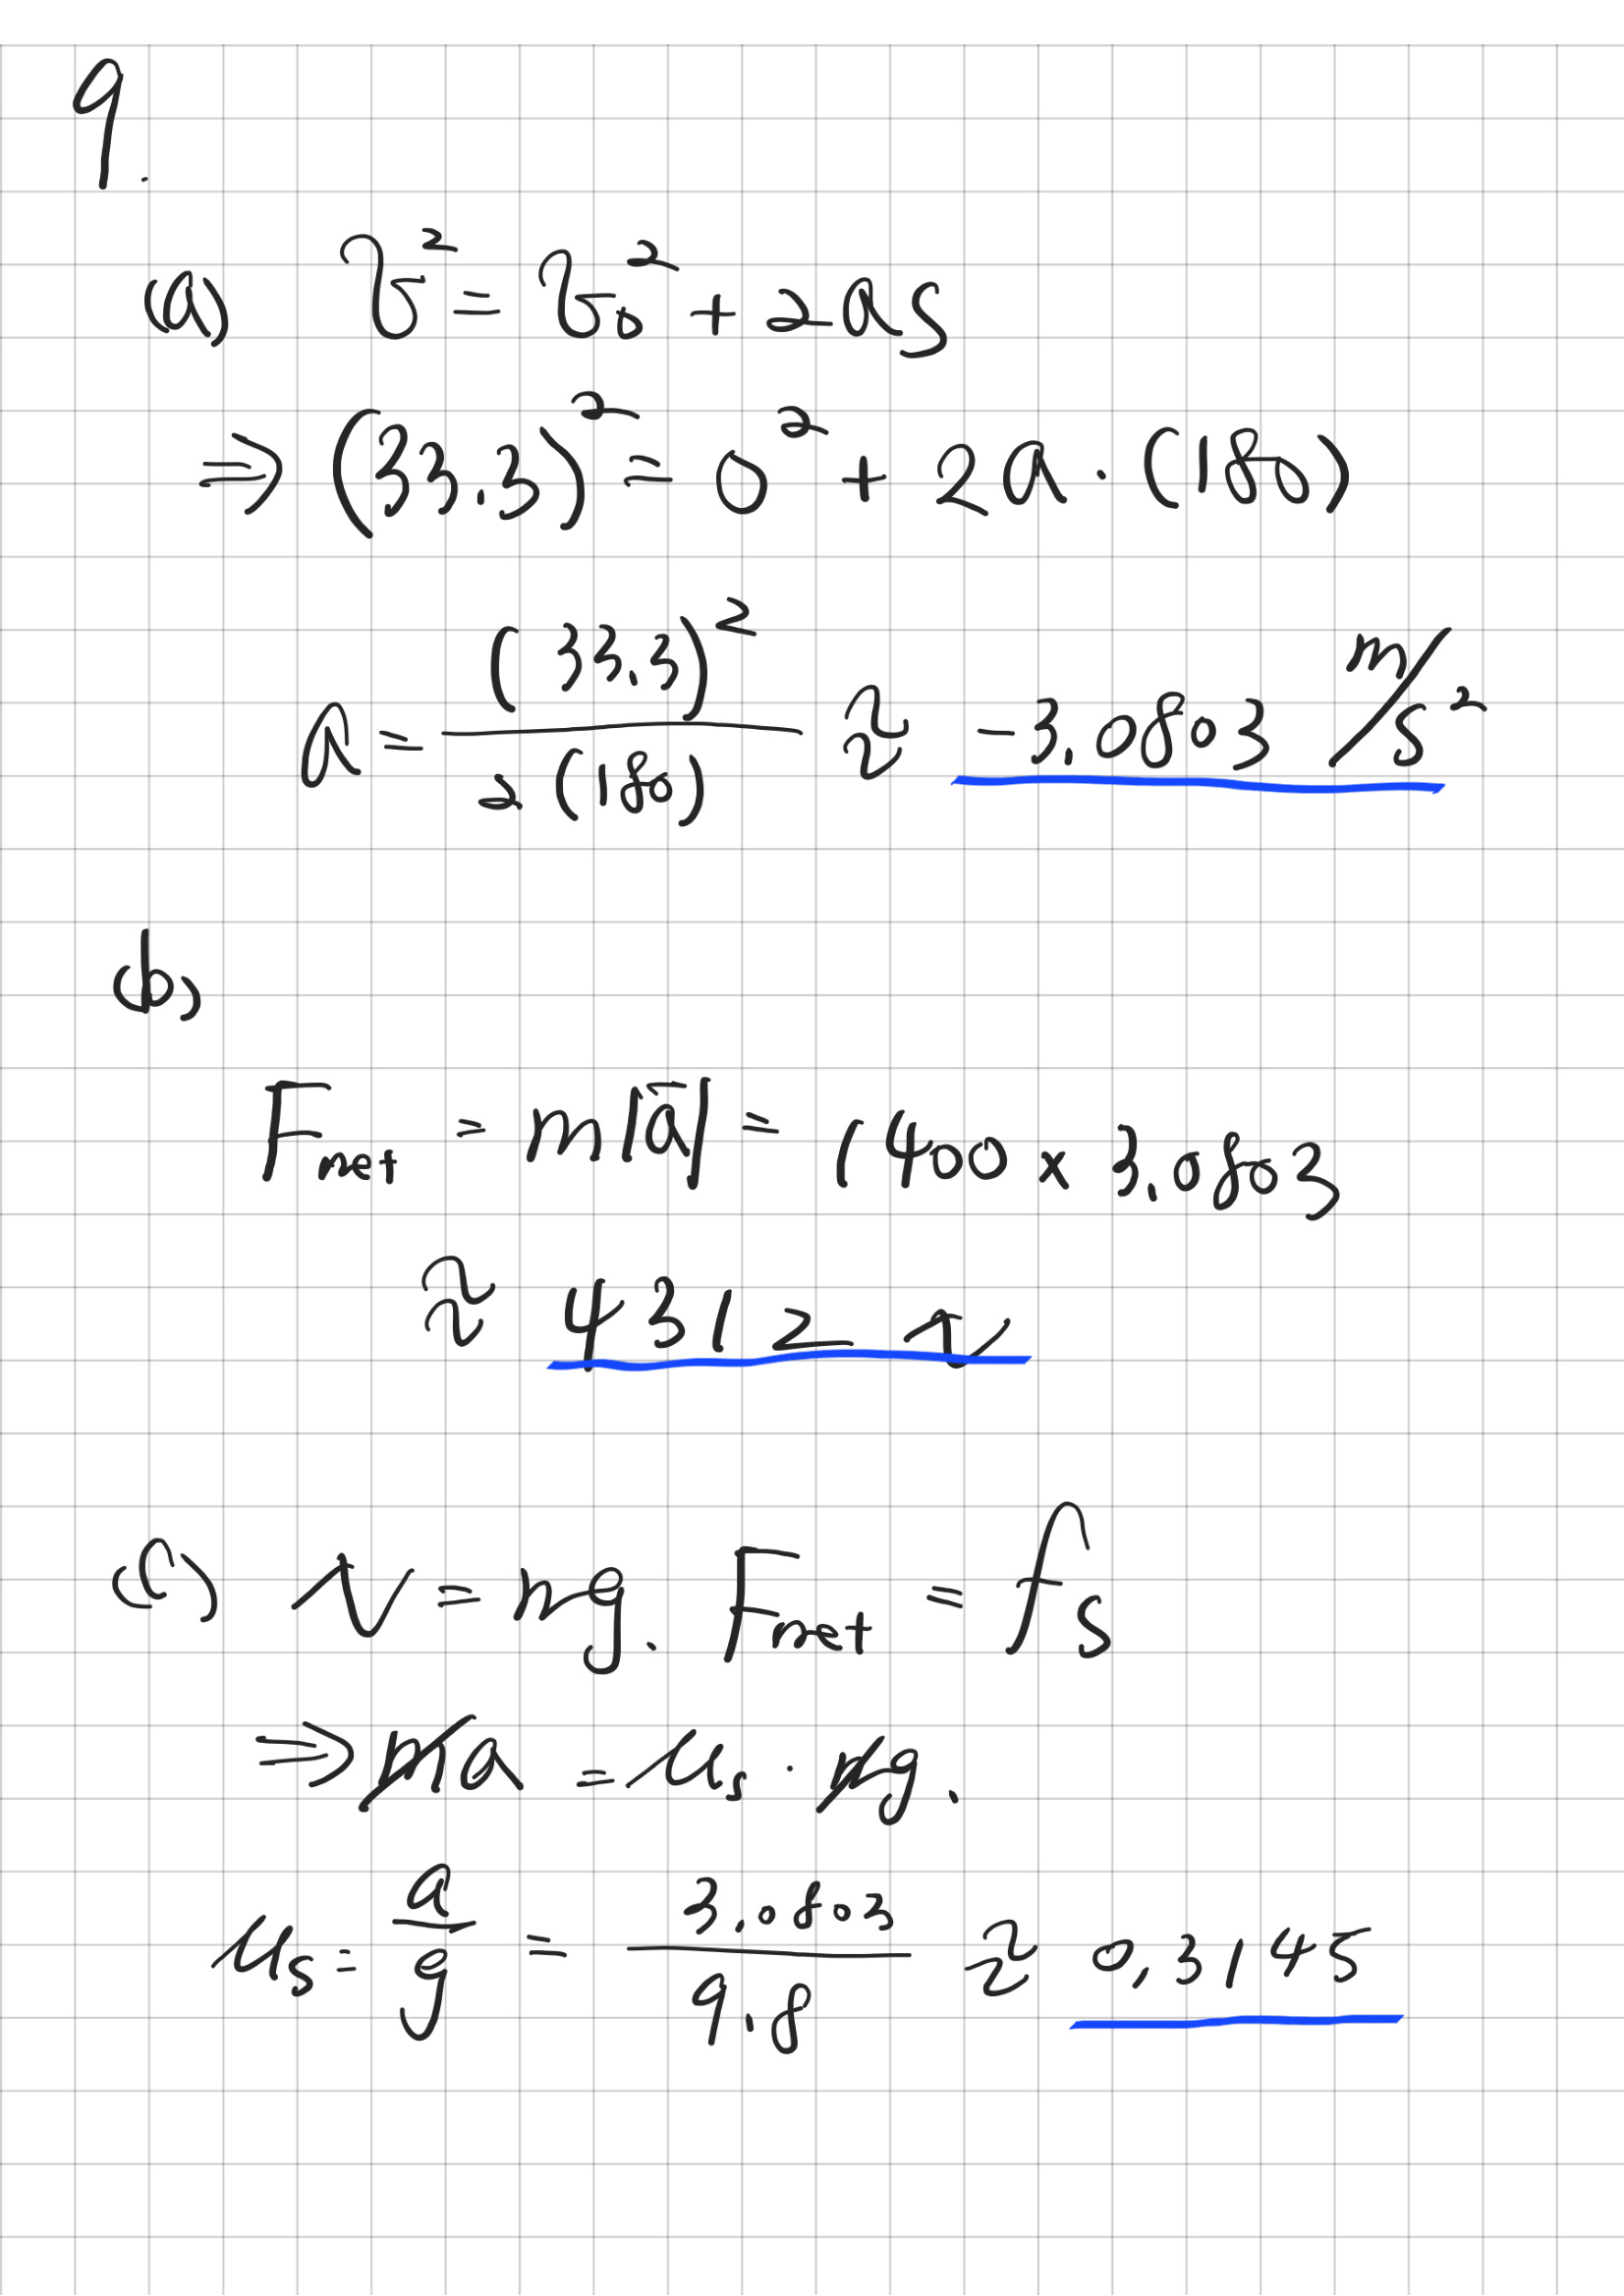 9.
(a) v² = v₀² + 2as
⇒ (33.3)² = 0² + 2a · (180)
a = (33.3)² / 2(180) ≈ -3.0803 m/s²
(b)
F_net = m|a| = 1400 x 3.0803
≈ 4312 N
(c) N = mg. F_net = f_s
⇒ ma = μ_s · mg.
μ_s = a/g = 3.0803 / 9.8 ≈ 0.3145